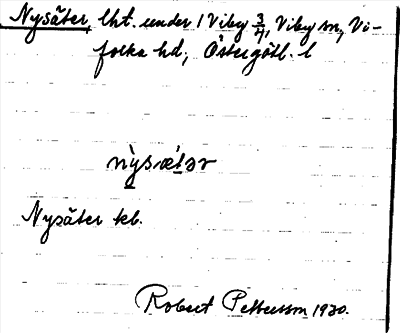 Nysäter, lht. under 1 Viby 3/4, Viby sn, Vi-
folka hd, Östergötl. l
nỳsæ̀tər
Nysäter kb.
Robert Pettersson 1930.